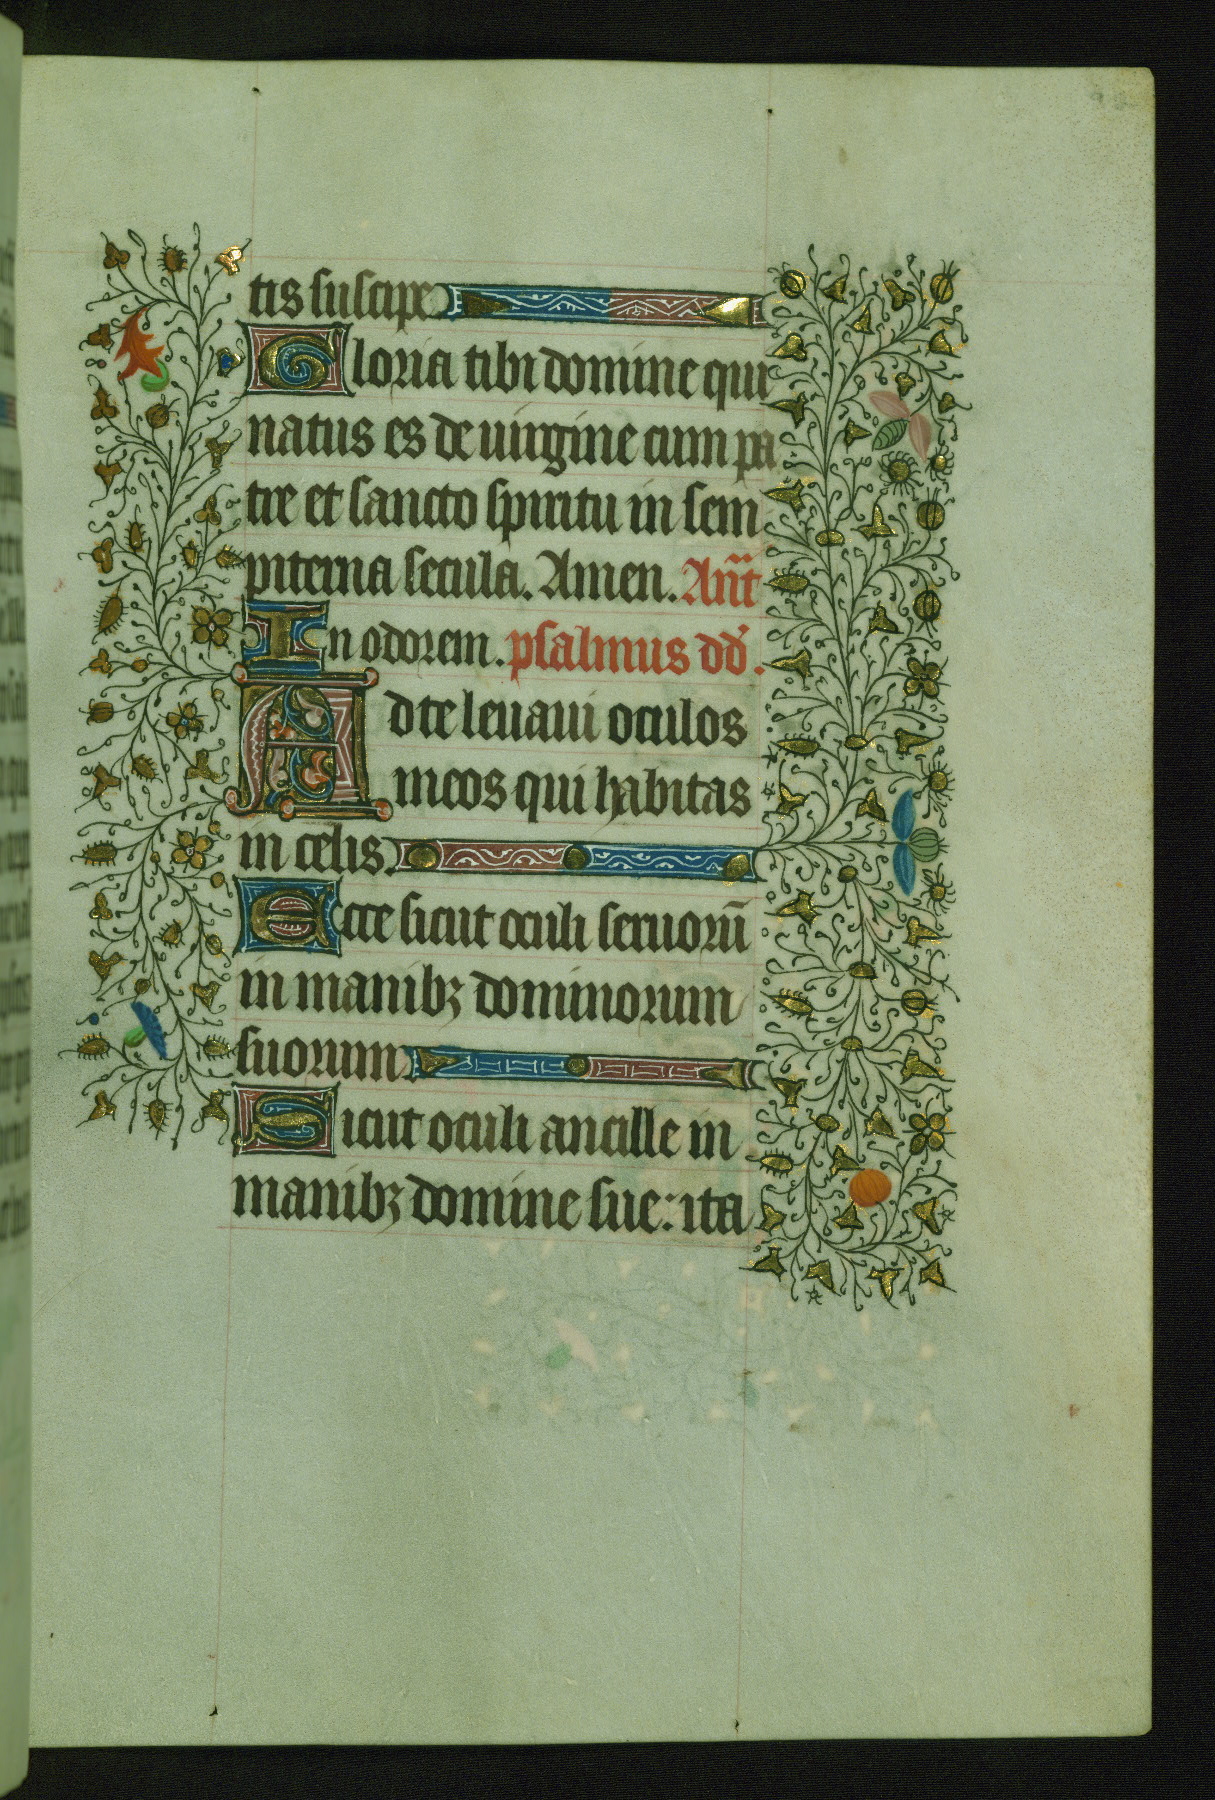 tis suscipe
Gloria tibi domine qui
natus es de uirgine cum pa
tre et sancto spiritu in sem
piterna secula. Amen. An̄t
In odorem. psalmus dd̄.
Ad te leuaui oculos
meos qui habitas
in celis.
Ecce sicut oculi seruorū
in manibꝫ dominorum
suorum
Sicut oculi ancille in
manibꝫ domine sue: ita